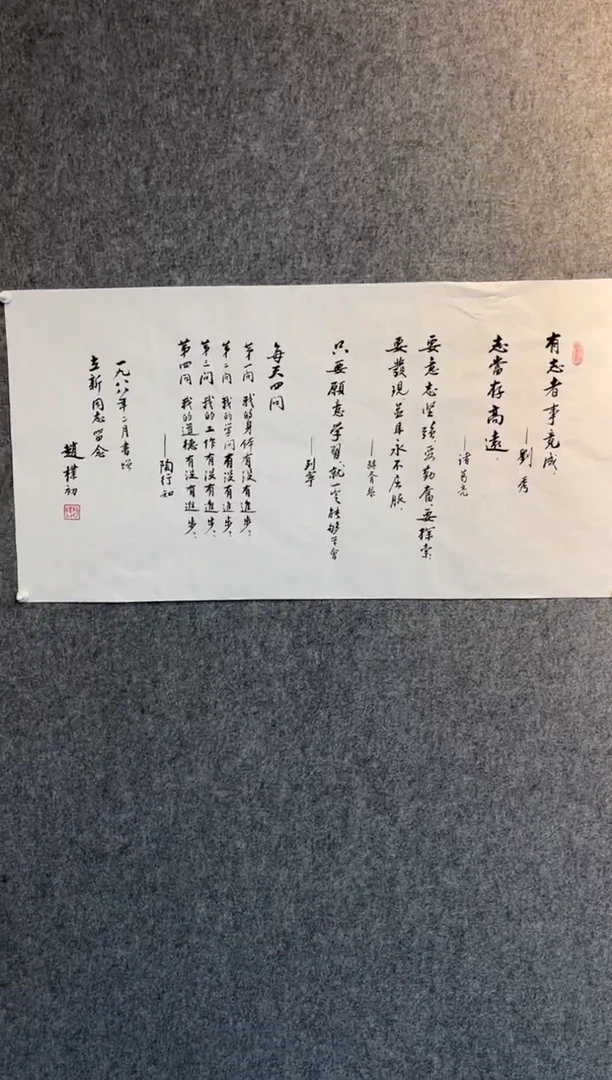 有志者事竟成.
——劉秀
志當存高遠.
——诸葛亮
要意志坚强,要勤奮要探索.
要發現並且永不屈服.
——赫胥黎
只要願意学習,就一定能够学會
——列寧
每天四问
第一问 我的身体有没有進步.
第二问 我的学问有没有進步.
第三问 我的工作有没有進步.
第四问 我的道德有没有進步.
——陶行知
一九八八年二月書贈
立新同志留念
趙樸初